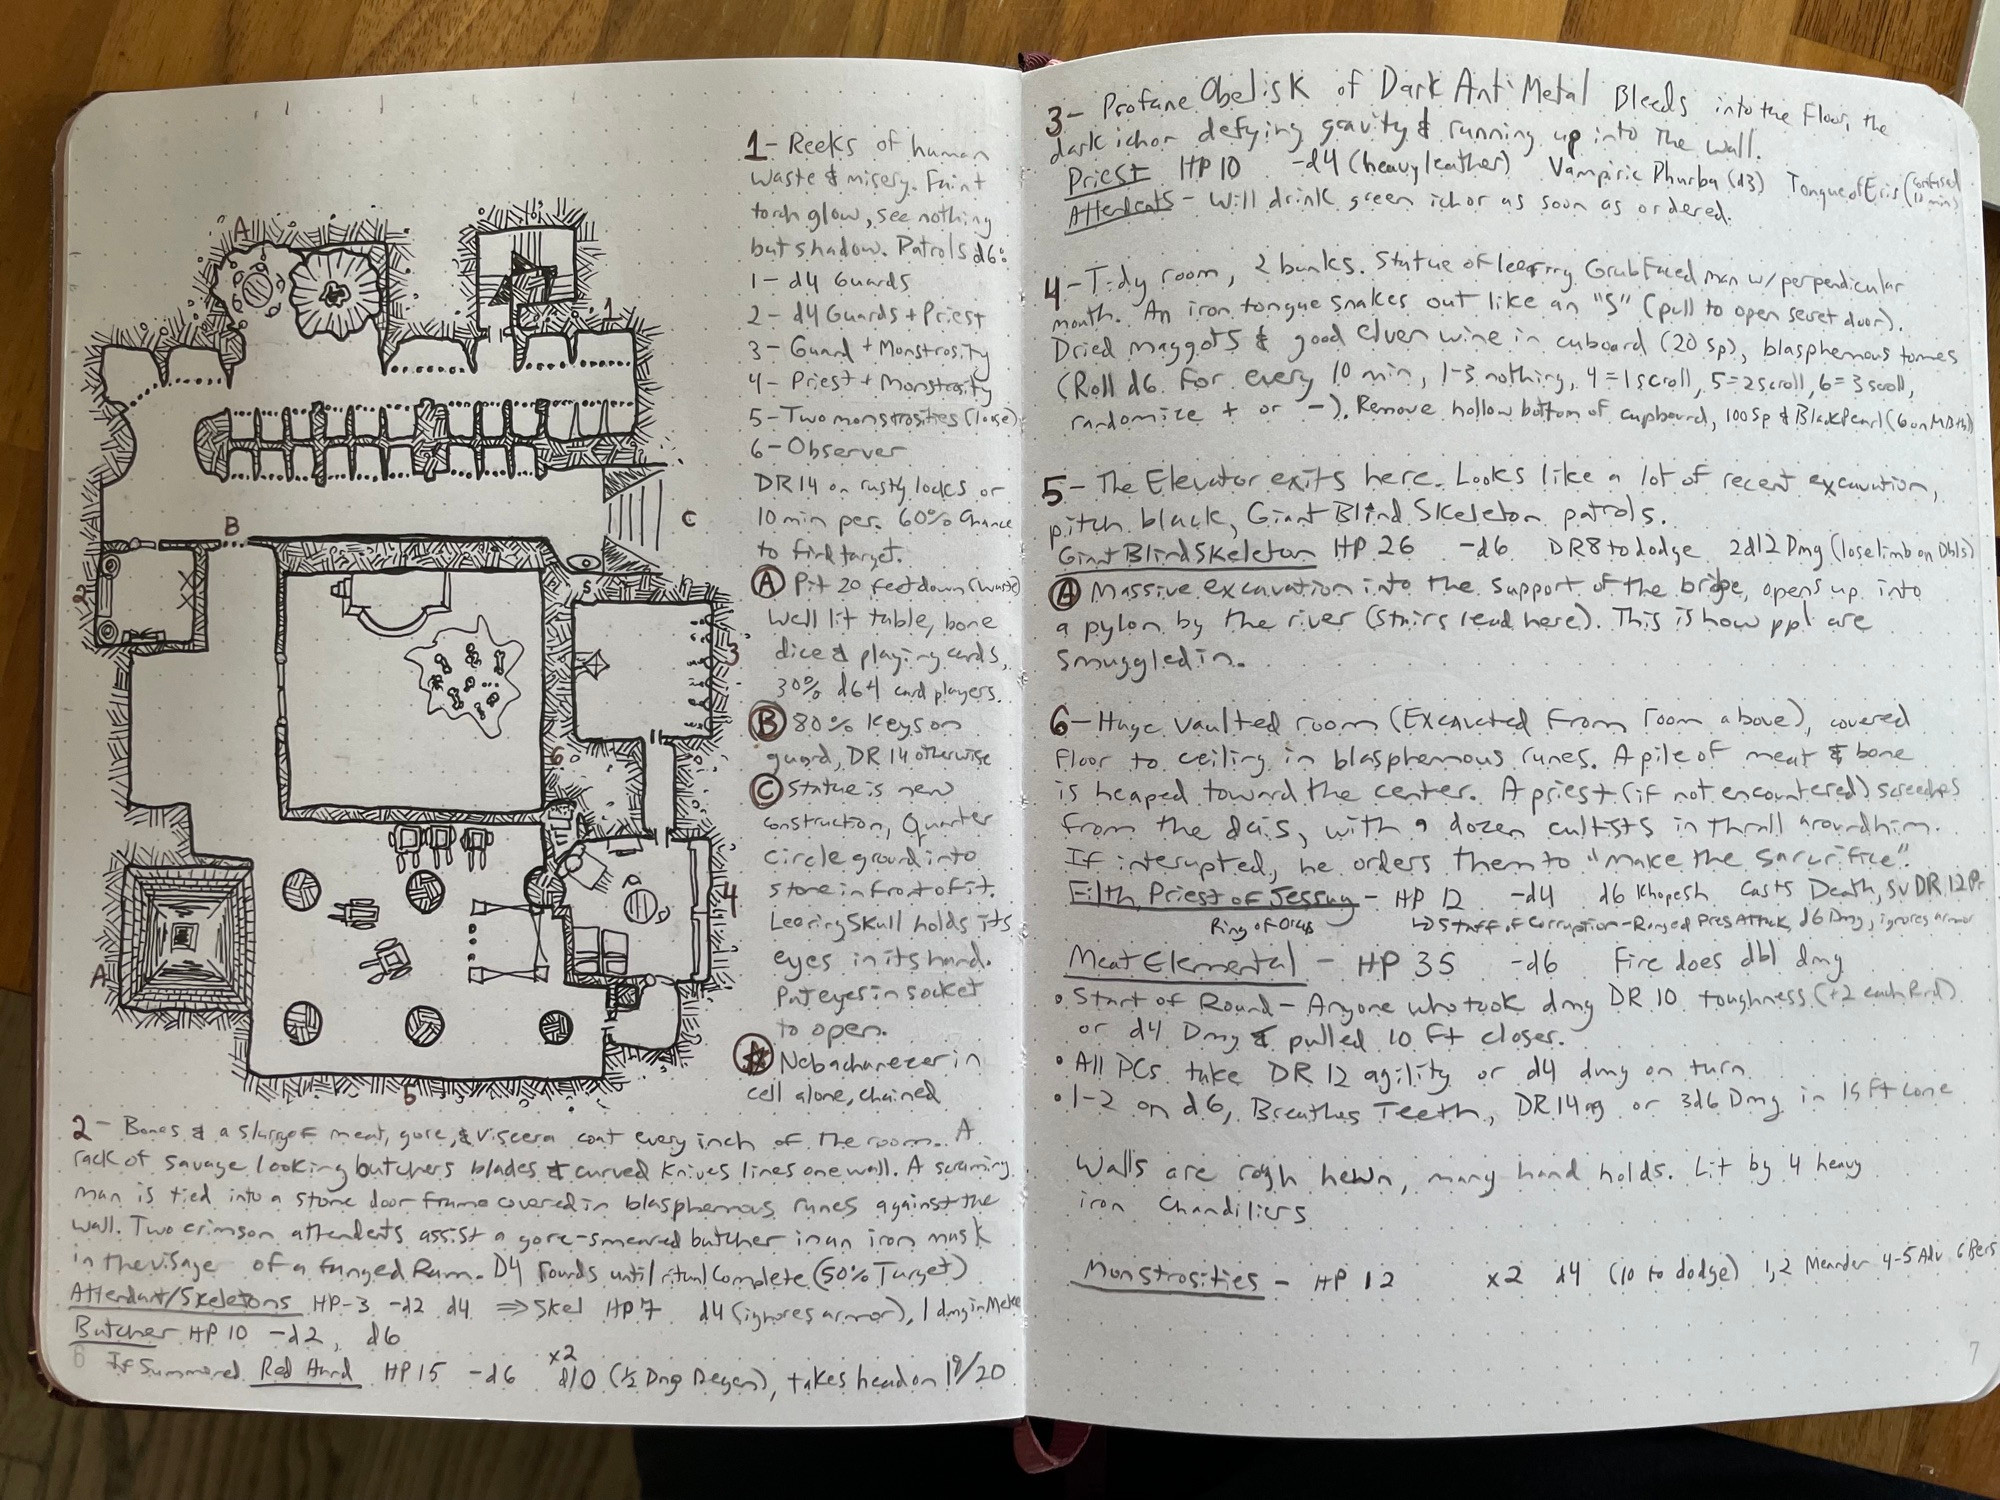 A
1
B
C
2
S
3
6
4
A
5
1- Reeks of human
waste & misery. Faint
torch glow, see nothing
but shadow. Patrols d6:
1- d4 Guards
2- d4 Guards + Priest
3- Guard + Monstrosity
4- Priest + Monstrosity
5- Two monstrosities (loose)
6- Observer
DR14 on rusty locks or
10 min per. 60% Chance
to find target.
A Pit 20 feet down (waste)
Well lit table, bone
dice & playing cards,
30% d6 4 card players.
B 80% Keys on
guard, DR 14 otherwise
C Statue is new
construction, Quarter
circle ground into
stone in front of it.
Leering Skull holds its
eyes in its hand.
Put eyes in socket
to open.
Nebachanezer in
cell alone, chained
2- Bones & a slurry of meat, gore, & viscera coat every inch of the room. A
rack of savage looking butchers blades & curved Knives lines one wall. A screaming
man is tied into a stone door frame covered in blasphemous runes against the
wall. Two crimson attendents assist a gore-smeared butcher in an iron mask
in the visage of a fanged Ram. D4 rounds until ritual complete (50% Target)
Attendant/Skeletons HP-3 -d2 d4 ⇒ Skel HP7 d4 (ignores armor), 1 dmg in Melee
Butcher HP 10 -d2, d6
If Summoned Red Hand HP 15 -d6 x2 d10 (½ Dmg Regen), takes head on 19/20
6
3- Profane Obelisk of Dark Ant Metal Bleeds into the Floor, the
dark ichor defying gravity & running up into the wall.
Priest HP 10 -d4 (heavy leather) Vampiric Phurba (d3) Tongue of Eris (Confused 10 min)
Attendents - Will drink green ichor as soon as ordered.
4- Tidy room, 2 bunks. Statue of leering Grub Faced man w/ perpendicular
mouth. An iron tongue snakes out like an "S" (pull to open secret door).
Dried maggots & good elven wine in cuboard (20 sp), blasphemous tomes
(Roll d6 for every 10 min, 1-3 nothing, 4=1 scroll, 5=2 scroll, 6=3 scroll,
randomize + or -). Remove hollow bottom of cupboard, 100 Sp & Black Pearl
5- The Elevator exits here. Looks like a lot of recent excavation,
pitch black, Giant Blind Skeleton patrols.
Giant Blind Skeleton HP 26 -d6 DR8 to dodge 2d12 Dmg (lose limb on Dbls)
A Massive excavation into the support of the bridge, opens up into
a pylon by the river (stairs lead here). This is how ppl are
smuggled in.
6- Huge vaulted room (Excavated from room above), covered
floor to ceiling in blasphemous runes. A pile of meat & bone
is heaped toward the center. A priest (if not encountered) screeches
from the dais, with a dozen cultists in thrall around him.
If interupted, he orders them to "make the sacurifice".
Filth Priest of Jessug - HP 12 -d4 d6 Khopesh Casts Death, SV DR 12 Pr
Ring of ↳ Staff of Corruption - Ranged Pres Attack, d6 Dmg, ignores armor
Meat Elemental - HP 35 -d6 Fire does dbl dmg
• Start of Round - Anyone who took dmg DR 10 toughness (+2 each Rnd)
or d4 Dmg & pulled 10 ft closer.
• All PCs take DR 12 agility or d4 dmg on turn
• 1-2 on d6, Breathes Teeth, DR 14 ag or 3d6 Dmg in 15 ft cone
Walls are rough hewn, many hand holds. Lit by 4 heavy
iron Chandiliers
Monstrosities - HP 12 x2 d4 (10 to dodge) 1,2 Meander 4-5 Adv 6 Bers
7